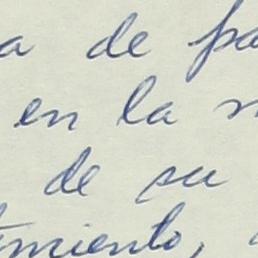 a de pa
en la
de su
timiento,